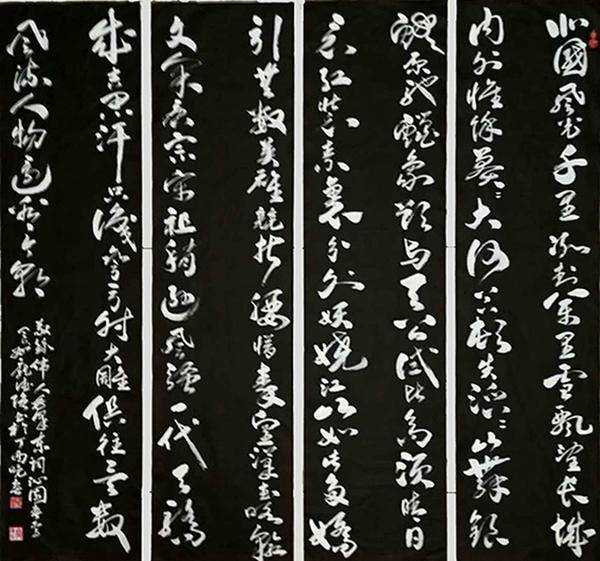 北國風光千里冰封萬里雪飄望長城
内外惟餘莽莽大河上下頓失滔滔山舞銀
蛇原馳蠟象欲與天公試比高須晴日
看紅裝素裹分外妖嬈江山如此多嬌
引無數英雄競折腰惜秦皇漢武略輸
文采唐宗宋祖稍遜風騷一代天驕
成吉思汗只識彎弓射大雕俱往矣數
風流人物還看今朝
敬錄偉人毛澤東詞沁園春雪